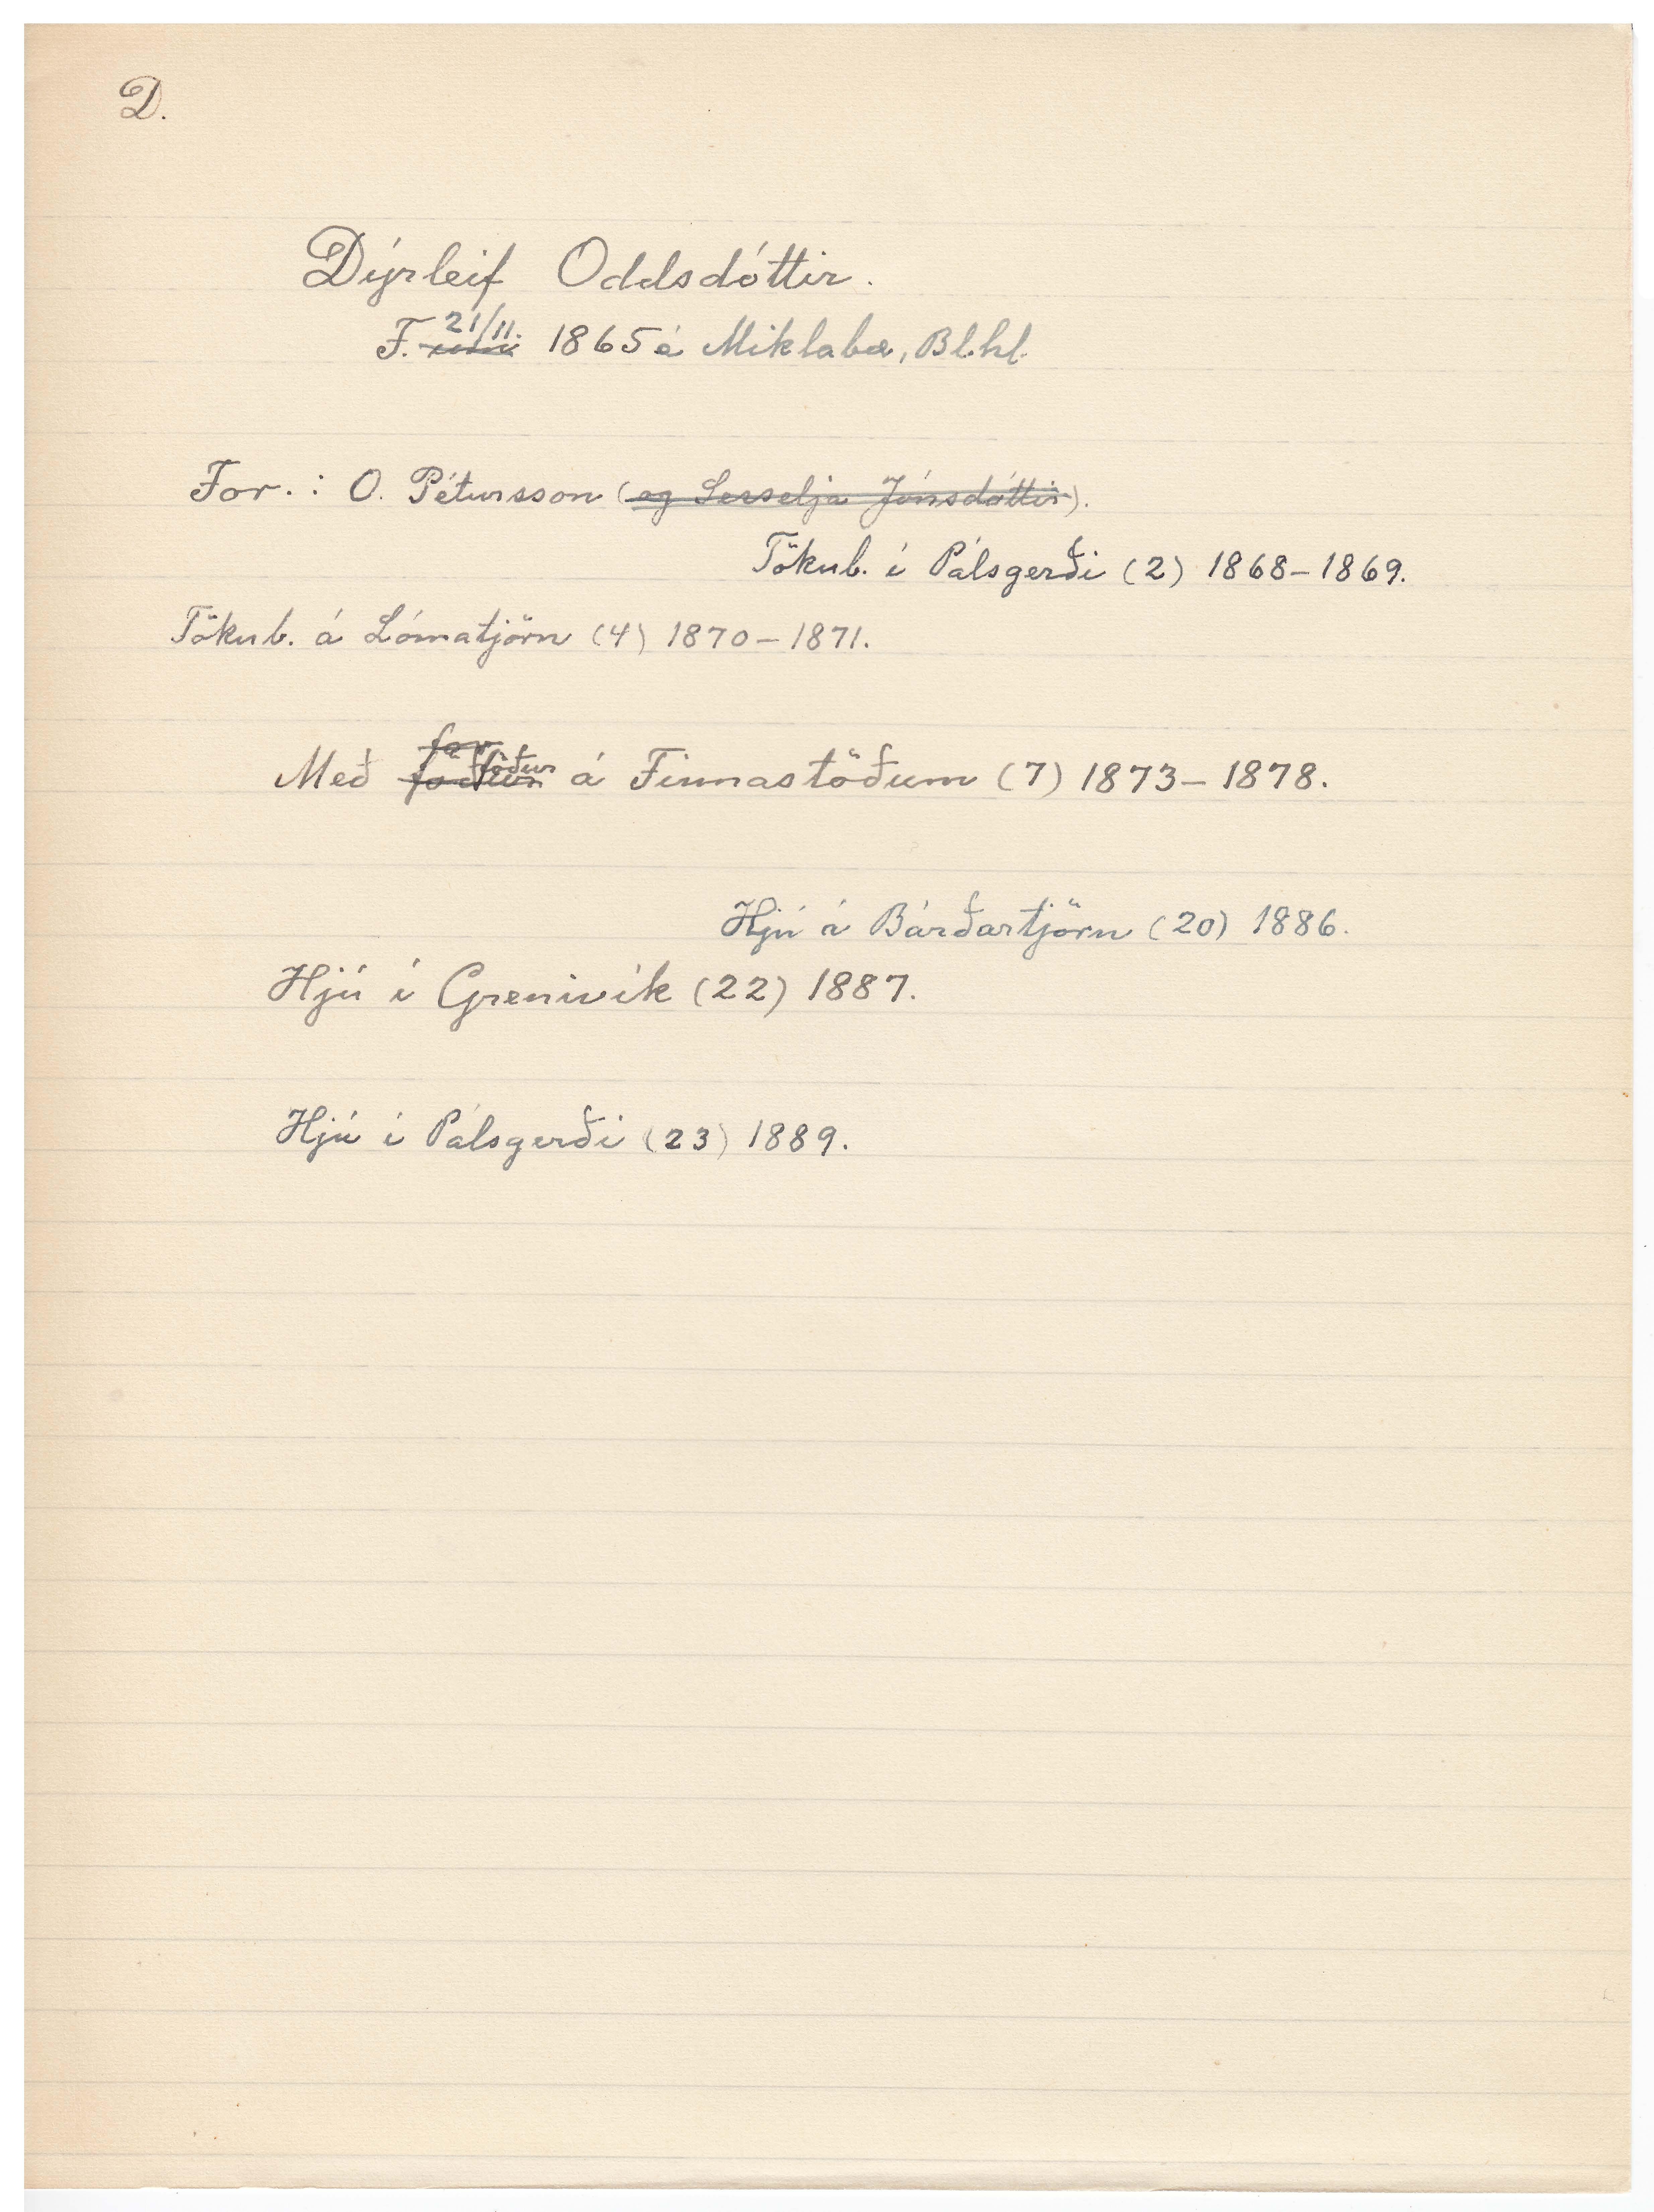 D.
Dýrleif Oddsdóttir.
F. 21/11. 1865 á Miklabæ, Bl.hl.
For. : O. Pétursson (og Sesselja Jónsdóttir).
Tökub. í Pálsgerði (2) 1868–1869.
Tökub. á Lómatjörn (4) 1870–1871.
Með föður á Finnastöðum (7) 1873–1878.
Hjú á Bárðartjörn (20) 1886.
Hjú í Grenivík (22) 1887.
Hjú í Pálsgerði (23) 1889.